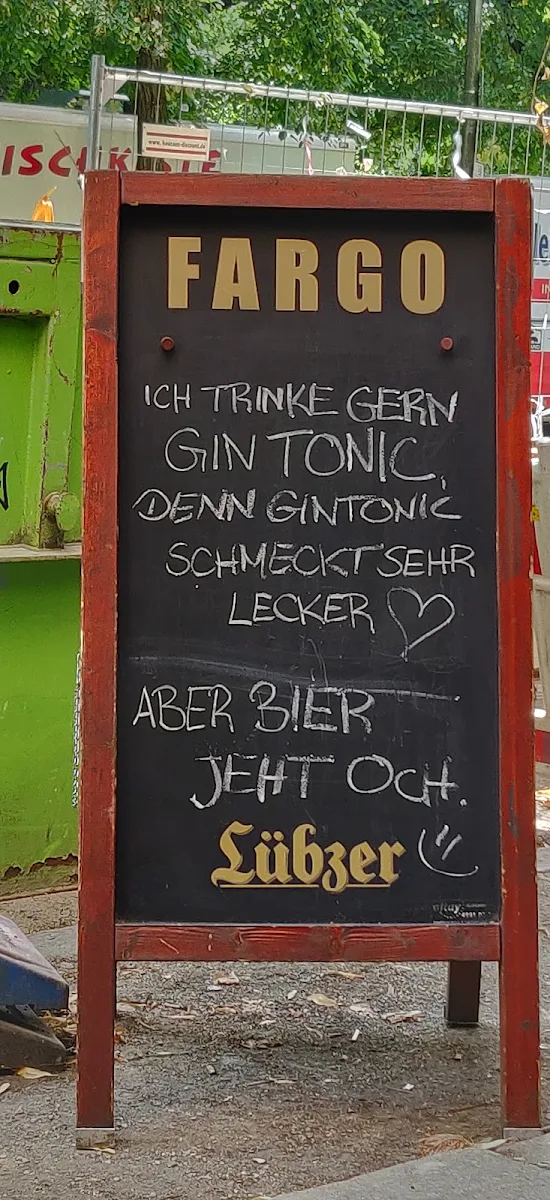 www.bauzaun-discount.de
FARGO
ICH TRINKE GERN
GIN TONIC,
DENN GINTONIC
SCHMECKT SEHR
LECKER ♡
ABER BIER
JEHT OCH.
Lübzer